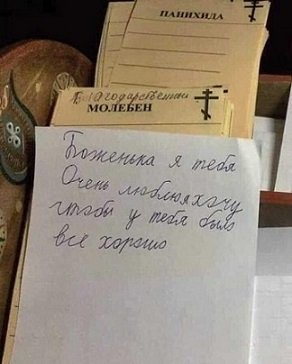 ПАНИХИДА
Благодарственный
МОЛЕБЕН
Боженька я тебя
Очень люблюя хочу
чтобы у тебя было
все хорошо